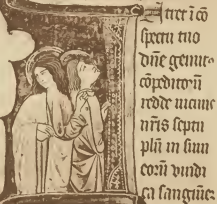 Intret ī cō
spectu tuo
dn̄e gemitꝰ
cōpeditoꝝ
redde uicinis
nr̄is septu
plū in sinu
eoꝝ uindi
ca sanguinē